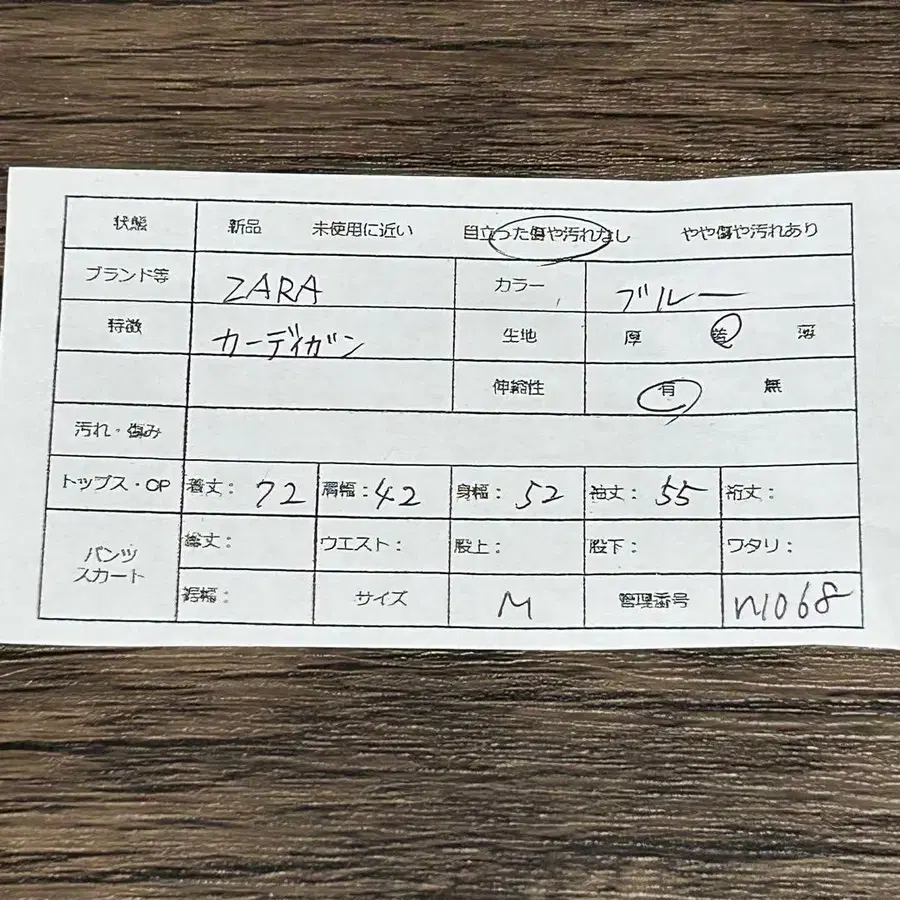 状態 新品 未使用に近い 目立った傷や汚れなし やや傷や汚れあり
ブランド等 ZARA カラー ブルー
特徴 カーディガン 生地 厚 普 薄
伸縮性 有 無
汚れ・傷み
トップス・OP 着丈: 72 肩幅: 42 身幅: 52 袖丈: 55 裄丈:
パンツ スカート 総丈: ウエスト: 股上: 股下: ワタリ:
裾幅: サイズ M 管理番号 n1068